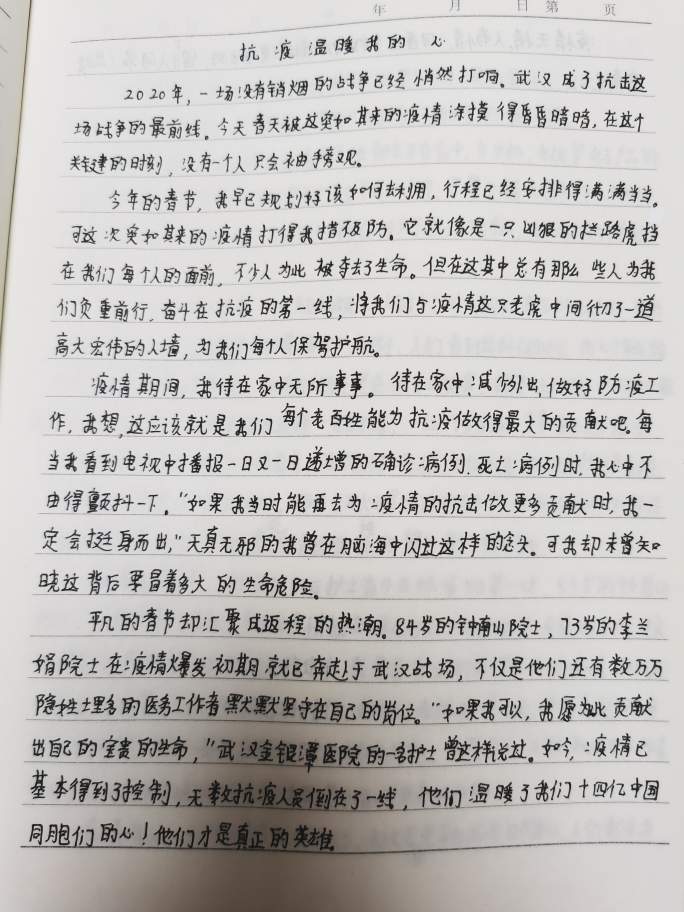 年 月 日 第 页
抗疫温暖我的心
2020年，一场没有销烟的战争已经悄然打响。武汉成了抗击这
场战争的最前线。今天春天被这突如其来的疫情涂摸得昏昏暗暗，在这个
关键的时刻，没有一个人只会袖手旁观。
今年的春节，我早已规划好该如何去利用，行程已经安排得满满当当。
可这次突如其来的疫情打得我措不及防。它就像是一只凶狠的拦路虎挡
在我们每个人的面前，不少人为此被夺去了生命。但在这其中总有那么些人为我
们负重前行，奋斗在抗疫的第一线，将我们与疫情这只老虎中间彻了一道
高大宏伟的人墙，为我们每个人保驾护航。
疫情期间，我待在家中无所事事。待在家中，减少外出，做好防疫工
作，我想，这应该就是我们每个老百姓能为抗疫做得最大的贡献吧。每
当我看到电视中播报一日又一日递增的确诊病例、死亡病例时，我心中不
由得颤抖一下。“如果我当时能再去为疫情的抗击做更多贡献时，我一
定会挺身而出，”天真无邪的我曾在脑海中闪过这样的念头。可我却未曾知
晓这背后要冒着多大的生命危险。
平凡的春节却汇聚成返程的热潮。84岁的钟南山院士，73岁的李兰
娟院士在疫情爆发初期就已奔走于武汉战场，不仅是他们还有数万万
隐姓埋名的医务工作者默默坚守在自己的岗位。“如果我可以，我愿为此贡献
出自己的宝贵的生命，”武汉金银潭医院的一名护士曾这样说过。如今，疫情已
基本得到了控制，无数抗疫人员倒在了一线，他们温暖了我们十四亿中国
同胞们的心！他们才是真正的英雄。